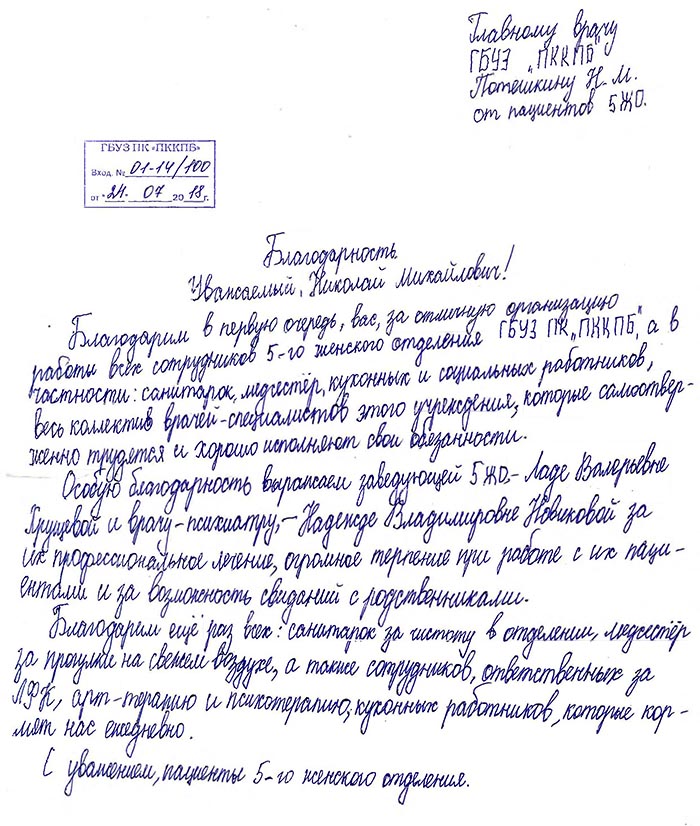 Главному врачу
ГБУЗ "ПККПБ"
Потешкину Н. М.
от пациентов 5ЖО.
ГБУЗ ПК «ПККПБ»
Вход. № 01-14/100
от "24. 07 2018 г.
Благодарность.
Уважаемый, Николай Михайлович!
Благодарим в первую очередь, вас, за отличную организацию
работы всех сотрудников 5-го женского отделения ГБУЗ ПК "ПККПБ", а в
частности: санитарок, медсестёр, кухонных и социальных работников,
весь коллектив врачей-специалистов этого учреждения, которые самоотвер-
женно трудятся и хорошо исполняют свои обязанности.
Особую благодарность выражаем заведующей 5ЖО - Ладе Валерьевне
Хрущевой и врачу-психиатру, - Надежде Владимировне Новиковой за
их профессиональное лечение, огромное терпение при работе с их паци-
ентами и за возможность свиданий с родственниками.
Благодарим ещё раз всех: санитарок за чистоту в отделении, медсестёр
за прогулки на свежем воздухе, а также сотрудников, ответственных за
ЛФК, арт-терапию и психотерапию, кухонных работников, которые кор-
мят нас ежедневно.
С уважением, пациенты 5-го женского отделения.